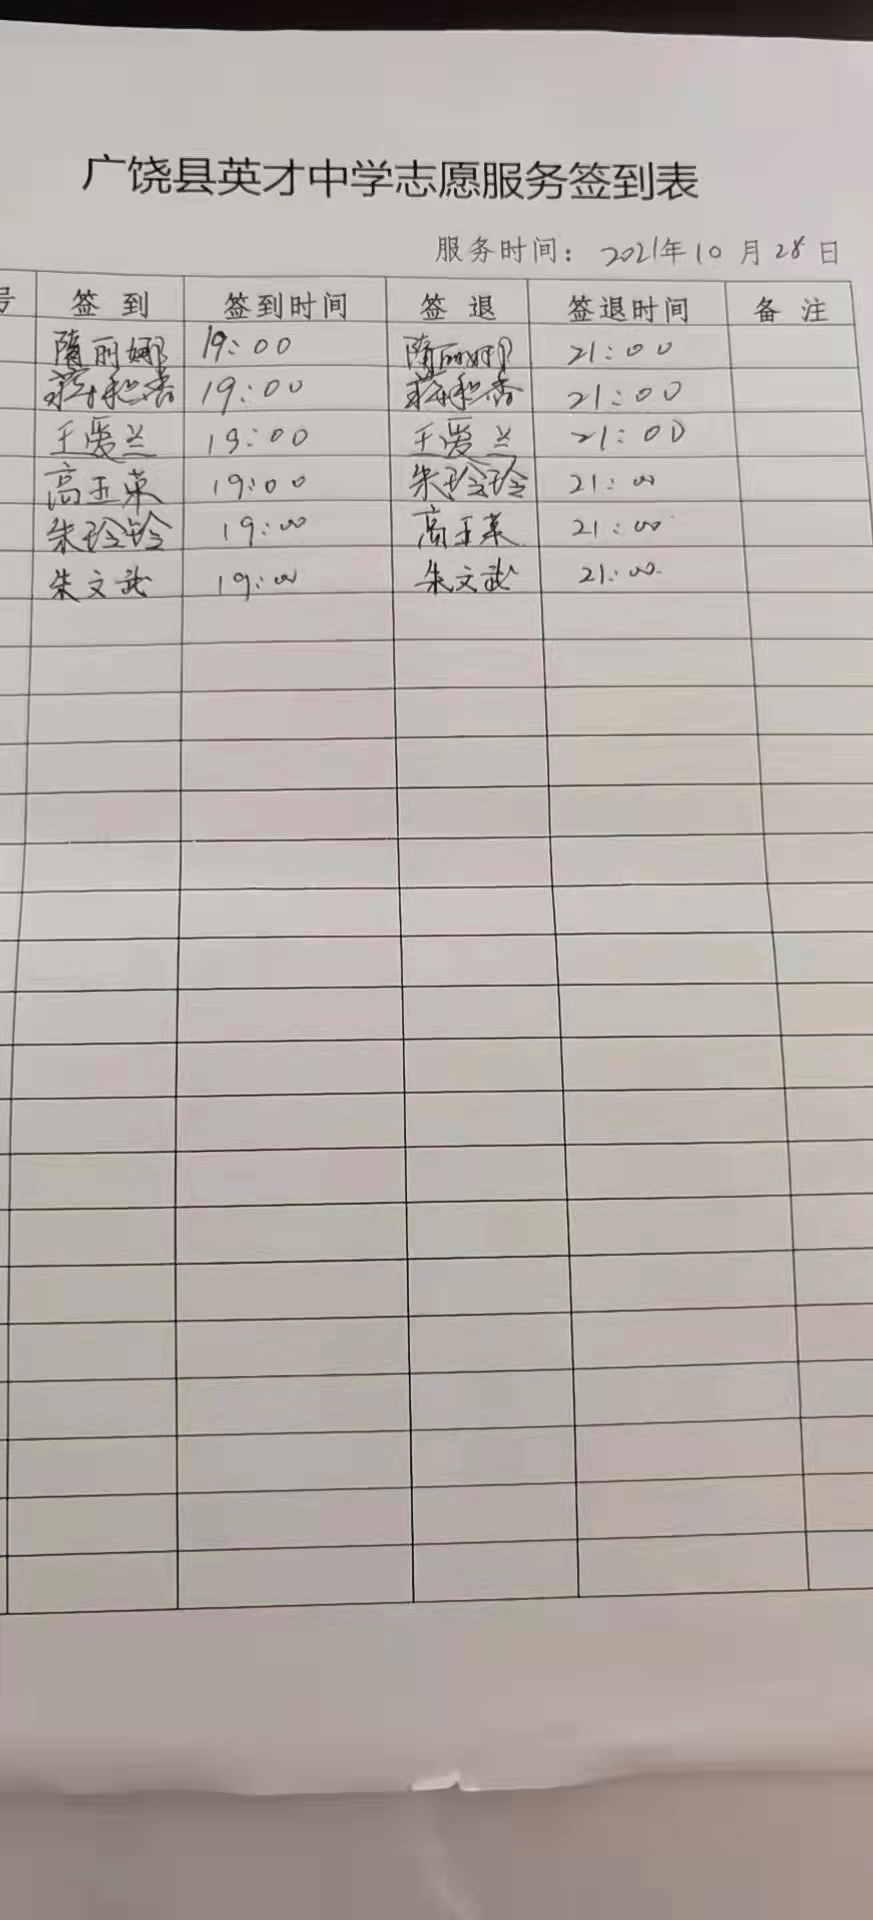 广饶县英才中学志愿服务签到表
服务时间： 2021年10月28日
号 签到 签到时间 签退 签退时间 备注
隋丽娜 19:00 隋丽娜 21:00
19:00 21:00
王爱兰 19:00 王爱兰 21:00
高玉英 19:00 朱玲玲 21:00
朱玲玲 19:00 高玉英 21:00
朱文武 19:00 朱文武 21:00